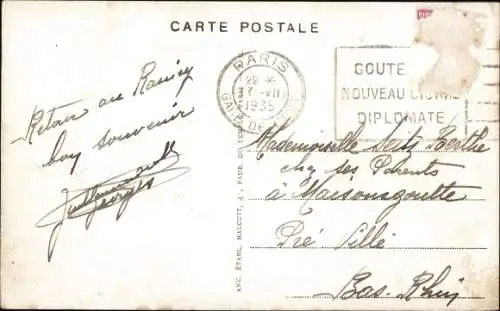 CARTE POSTALE
PARIS
22 *
7 - VII
1935
GARE DE
GOUTE
NOUVEAU
DIPLOMATE
Retour au Raincy
bon souvenir
Georges
Mademoiselle Seitz Berthe
chez ses Parents
à Maisonsgoutte
Pré Villé
Bas-Rhin
ANC. ÉTABL. MALCUIT, 41, FAUB. DU TEMPLE, PARIS